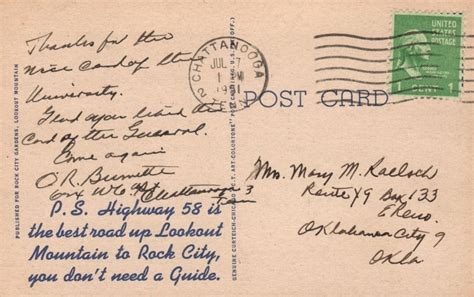 Thanks for the
nice card of the
University.
Glad you liked the
Card of the
Come again
O.R. Burnette
Box
Chattanooga 3
Tenn
P.S. Highway 58 is
the best road up Lookout
Mountain to Rock City,
you don't need a Guide.
PUBLISHED FOR ROCK CITY GARDENS, LOOKOUT MOUNTAIN
GENUINE CURTEICH-CHICAGO "C.T. ART-COLORTONE" POST CARD
CHATTANOOGA
JUL
1941
TENN.
POST CARD
UNITED
STATES
POSTAGE
1 CENT 1
Mrs. Mary M.
Route #9 Box 133
El Reno.
Oklahoma City 9
Okla